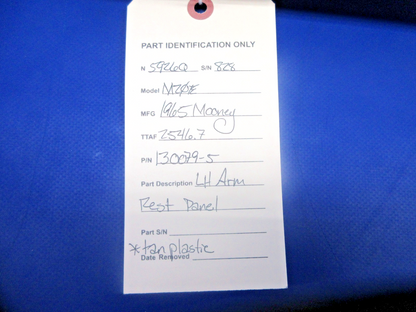 PART IDENTIFICATION ONLY
N 5926Q S/N 828
Model M20E
MFG 1965 Mooney
TTAF 2546.7
P/N 130079-5
Part Description LH Arm
Rest Panel
Part S/N
*tan plastic
Date Removed